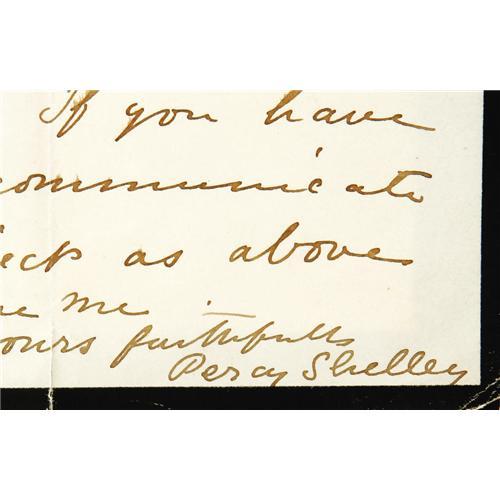 If you have
communicate
ject as above
me
ours faithfully
Percy Shelley